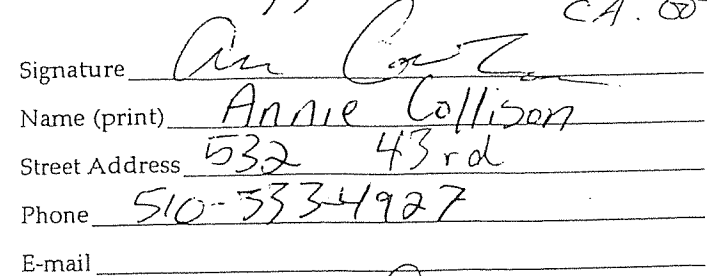 CA.
Signature
Name (print) Annie Collison
Street Address 532 43rd
Phone 510-333-4927
E-mail